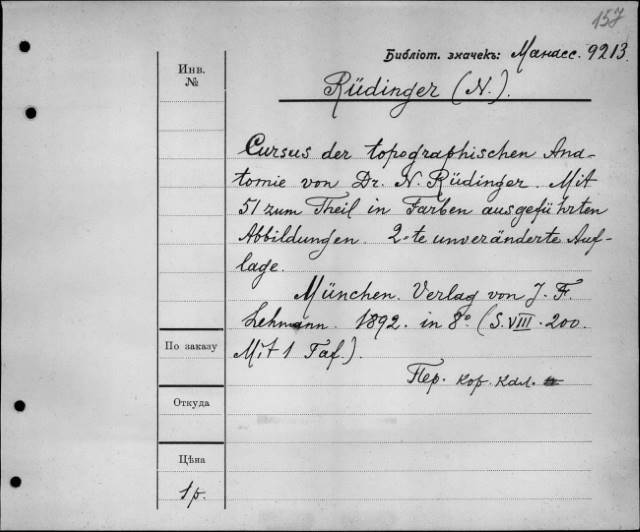 157
Библіот. значекъ: Манасс. 9213
Инв.
№
Rüdinger (N.).
Cursus der topographischen Ana-
tomie von Dr. N. Rüdinger. Mit
51 zum Theil in Farben ausgeführten
Abbildungen. 2-te unveränderte Auf-
lage.
München. Verlag von J. F.
Lehmann. 1892. in 8° (S. VIII. 200.
Mit 1 Taf.).
По заказу
Пер. кор. кал.
Откуда
Цѣна
1 р.